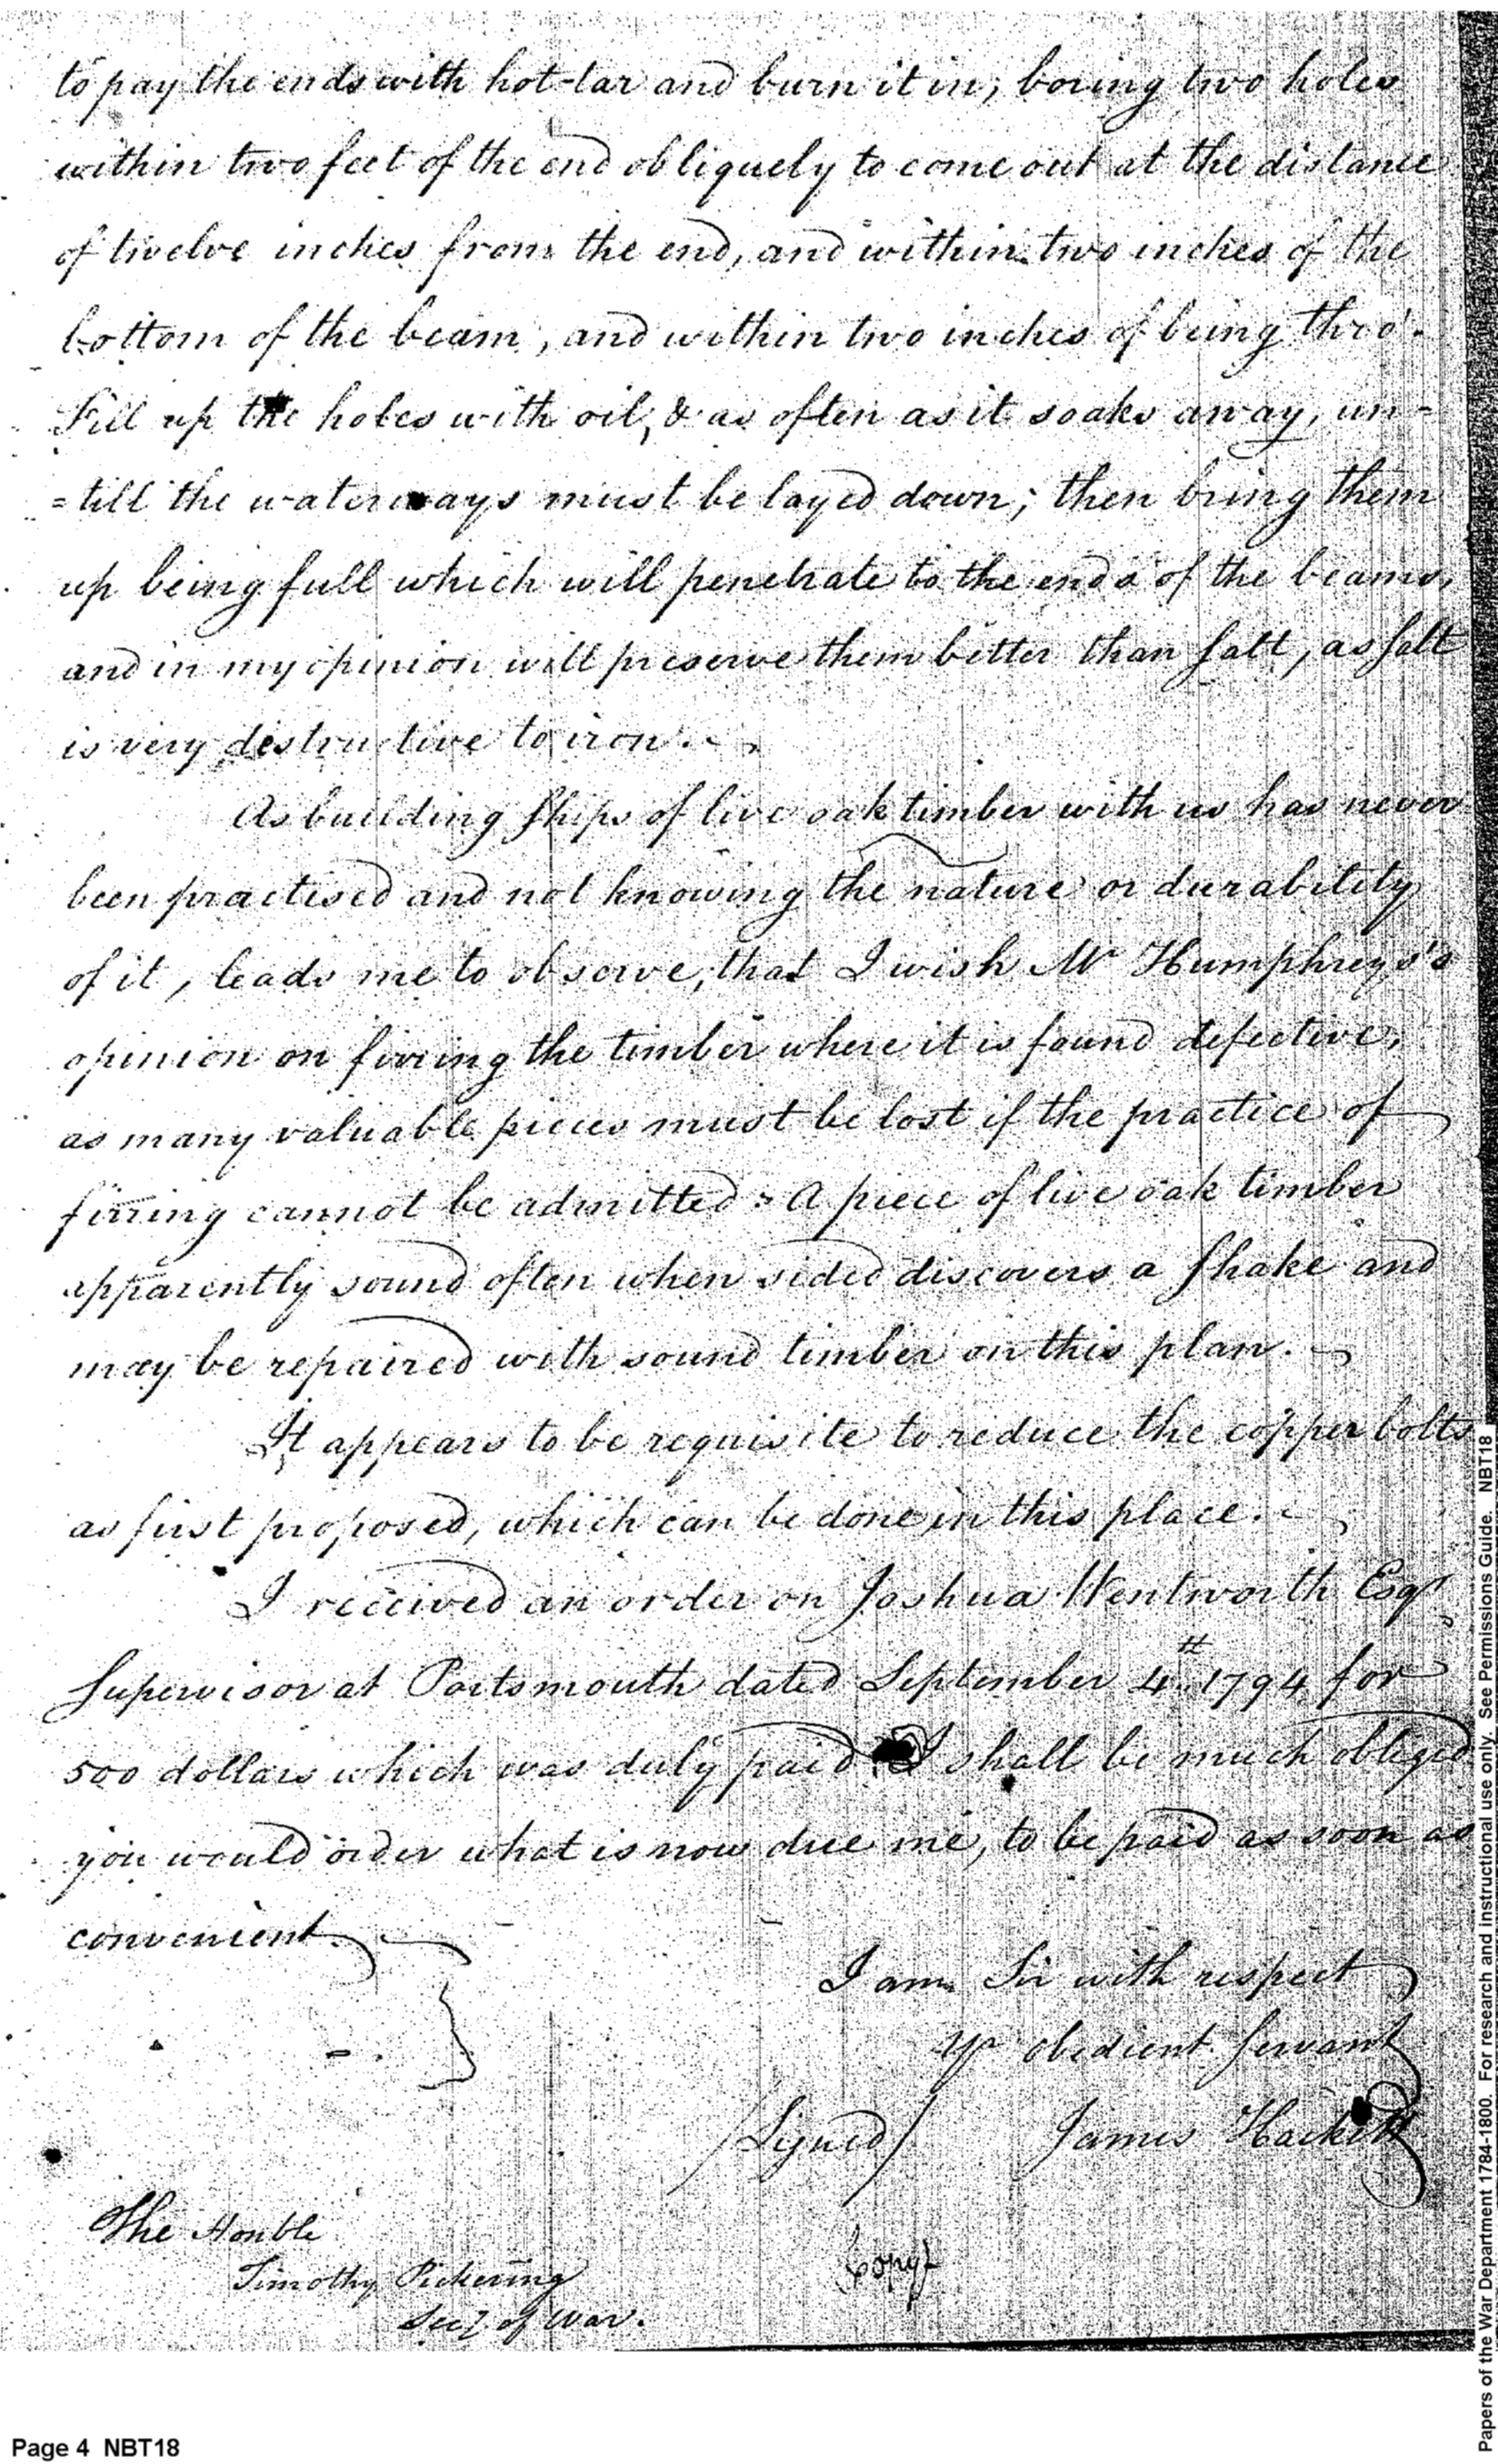 to pay the ends with hot-tar and burn it in, boring two holes
within two feet of the end obliquely to come out at the distance
of twelve inches from the end, and within two inches of the
bottom of the beam, and within two inches of being thro'.
Fill up the holes with oil, & as often as it soaks away, un=
=till the waterways must be layed down; then bring them
up being full which will penetrate to the ends of the beams,
and in my opinion will preserve them better than salt, as salt
is very destructive to iron.
As building ships of live oak timber with us has never
been practised and not knowing the nature or durability
of it, leads me to observe, that I wish Mr Humphreys's
opinion on firring the timber where it is found defective,
as many valuable pieces must be lost if the practice of
firring cannot be admitted: A piece of live oak timber
apparently sound often when sided discovers a shake and
may be repaired with sound timber on this plan.
It appears to be requisite to reduce the copper bolts
as first proposed, which can be done in this place.
I received an order on Joshua Wentworth Esqr
Supervisor at Portsmouth dated September 4th 1794 for
500 dollars which was duly paid. I shall be much obliged
you would order what is now due me, to be paid as soon as
convenient.
I am Sir with respect
yr obedient servant
/Signed/ James Hackett
The Honble
Timothy Pickering
Secy of War.
Copy
Page 4 NBT18
Papers of the War Department 1784-1800. For research and instructional use only. See Permissions Guide. NBT18